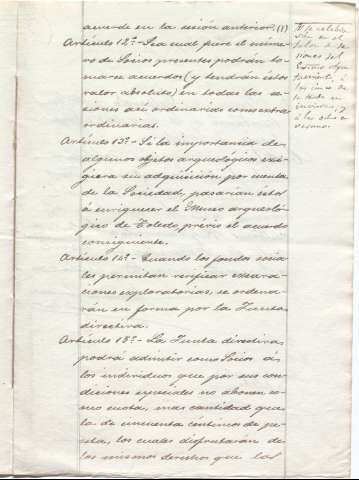 acuerde en la sesión anterior. (1)
Artículo 12º.- Sea cual fuere el núme-
ro de Socios presentes podrán to-
marse acuerdos (y tendrán éstos
valor absoluto) en todas las se-
siones así ordinarias como extra-
ordinarias.
Artículo 13º.- Si la importancia de
algunos objetos arqueológicos exi-
giera su adquisición por cuenta
de la Sociedad, pasarían éstos
á enriquecer el Museo arqueoló-
gico de Toledo, prévio el acuerdo
consiguiente.
Artículo 14º.- Cuando los fondos socia-
les permitan verificar excava-
ciones exploratorias, se ordena-
rán en forma por la Junta
directiva.
Artículo 15º.- La Junta directiva
podrá admitir como Socios á
los individuos que por sus con-
diciones especiales no abonen co-
mo cuota, mas cantidad que
la de cincuenta céntimos de pe-
seta, los cuales disfrutarán de
los mismos derechos que los
se celebra-
en el
Salon de se-
siones del
á
las cinco de
la tarde en
invierno, y
á las ocho en
verano.